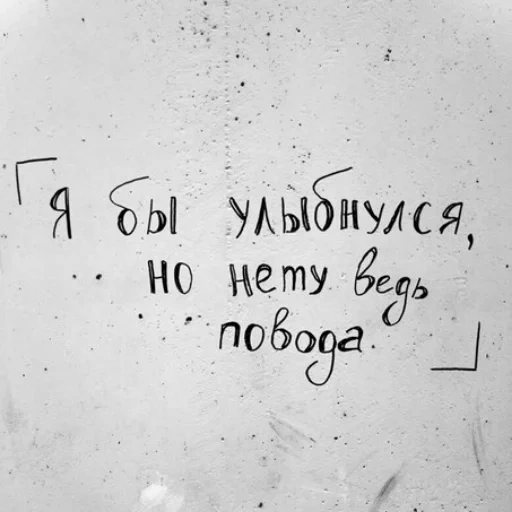 Я бы улыбнулся,
но нету ведь
повода.